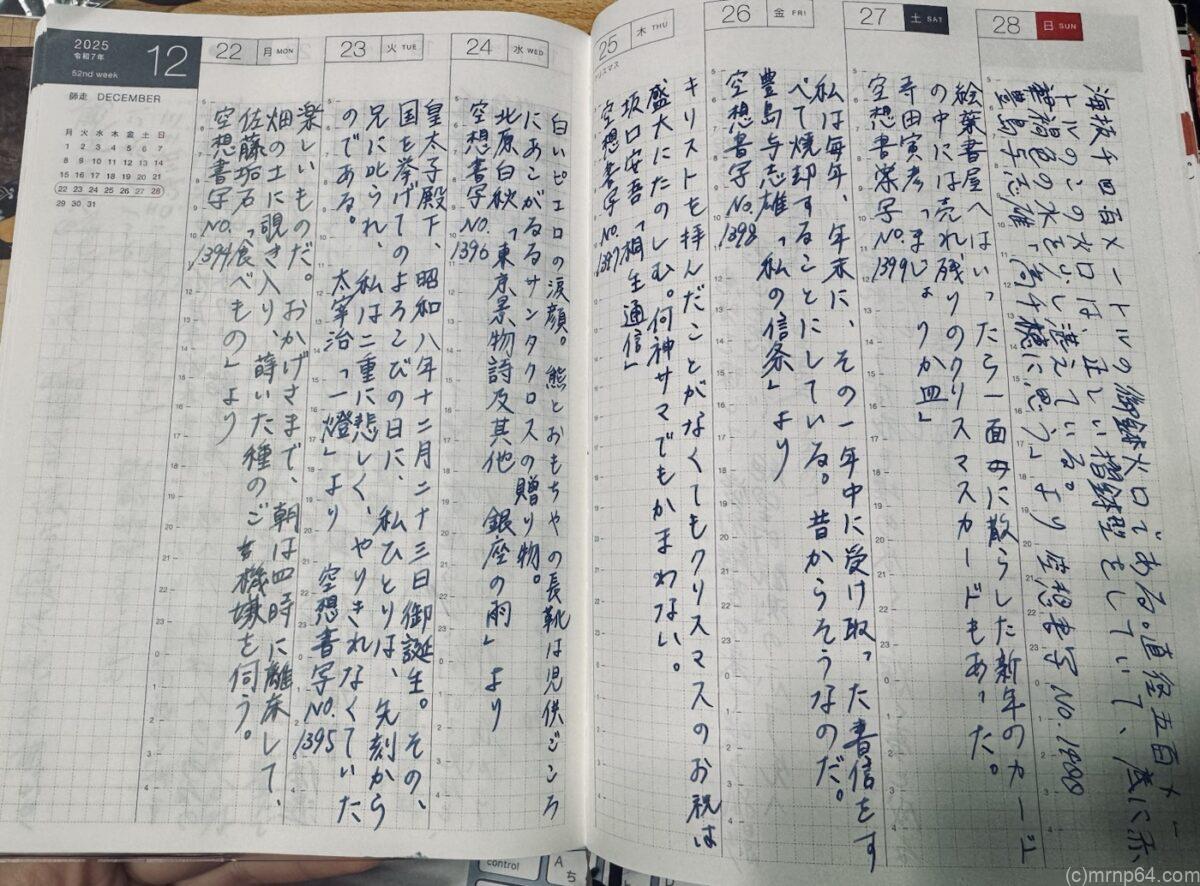 2025
令和7年
52nd week
12
師走 DECEMBER
月 火 水 木 金 土 日
1 2 3 4 5 6 7
8 9 10 11 12 13 14
15 16 17 18 19 20 21
22 23 24 25 26 27 28
29 30 31
22 月 MON
楽しいものだ。おかげさまで、朝は四時に離床して、
畑の土に覗き入り、蒔いた種のご機嫌を伺う。
佐藤垢石「食べもの」より
空想書写NO.1394
23 火 TUE
皇太子殿下、昭和八年十二月二十三日御誕生。その、
国を挙げてのよろこびの日に、私ひとりは、先刻から
兄に叱られ、私は二重に悲しく、やりきれなくていた
のである。 太宰治「一燈」より 空想書写NO.1395
24 水 WED
白いピエロの涙顔。熊とおもちやの長靴は児供ごころ
にあこがるるサンタクロスの贈り物。
北原白秋「東京景物詩及其他 銀座の雨」より
空想書写NO.1396
25 木 THU
クリスマス
キリストを拝んだことがなくてもクリスマスのお祝は
盛大にたのしむ。何神サマでもかまわない。
坂口安吾「桐生通信」
空想書写NO.1397
26 金 FRI
私は毎年、年末に、その一年中に受け取った書信をす
べて焼却することにしている。昔からそうなのだ。
豊島与志雄「私の信条」より
空想書写No.1398
27 土 SAT
絵葉書屋へはいったら一面に散らした新年のカード
の中には売れ残りのクリスマスカードもあった。
寺田寅彦「まじょりか皿」
空想書写No.1399
28 日 SUN
海抜千四百メートルの御鉢火口である。直径五百メー
トルのこの火口は、正しい摺鉢型をしていて、底に赤
褐色の水を少し湛えている。
豊島与志雄「高千穂に思う」より 空想書写No.1400
control
A
ち
(c)mrnp64.com